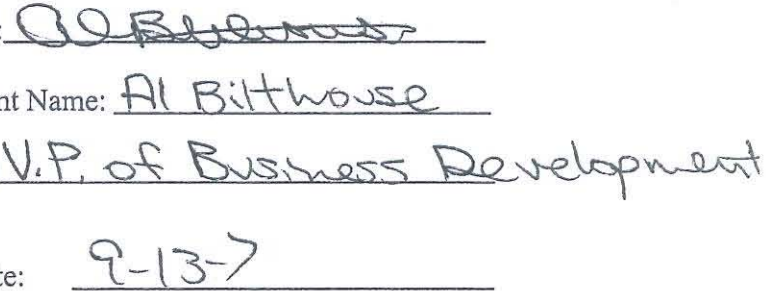 : Al Bilthouse
nt Name: Al Bilthouse
V.P. of Business Development
te: 9-13-7